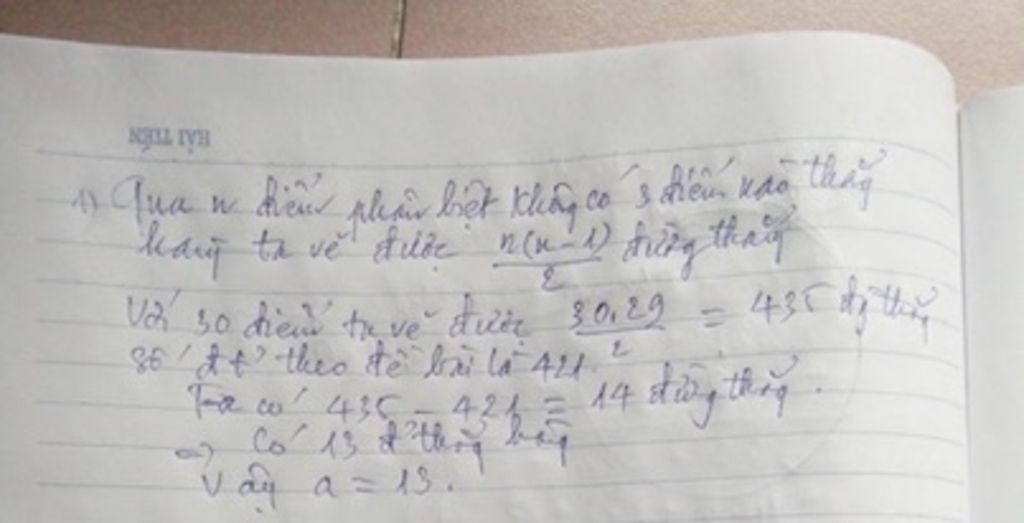 HẢI TIẾN
1) Qua n điểm phân biệt không có 3 điểm nào thẳng
hàng ta vẽ được n(n-1)/2 đường thẳng
Với 30 điểm ta vẽ được 30.29/2 = 435 đg thẳng
Số đt theo đề bài là 421
Ta có 435 - 421 = 14 đường thẳng.
=> Có 13 đ thẳng hàng
Vậy a = 13.